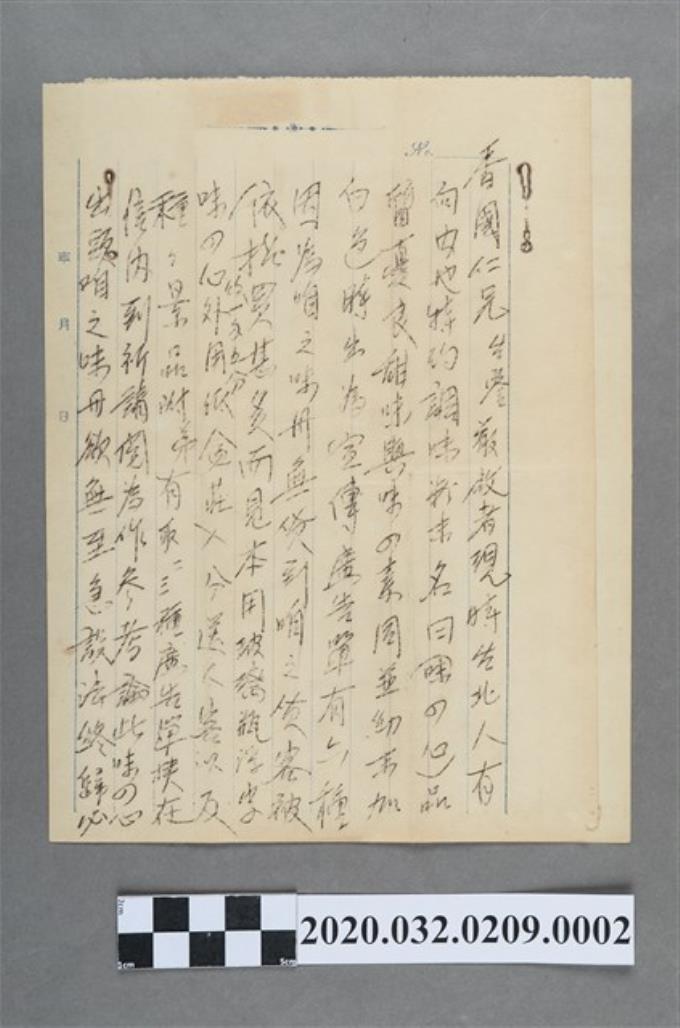 春國仁兄台鑒敬啟者現時台北人有
向內地特約調味粉末名曰味の心品
質優良甜味與味の素同並幼末加
白色時出為宣傳廣告單有六種
因為咱之味丹無貨到咱之貨客被
依推買甚多而見本用玻璃瓶浮字
味の心外用紙盒莊入分送人客以及
種々景品附弟有取二三種廣告單挾在
信內到祈請閱為作參考論此味の心
出頭咱之味丹欲無至急設法終歸必
No.
年 月 日
2020.032.0209.0002
2cm
0cm
5cm